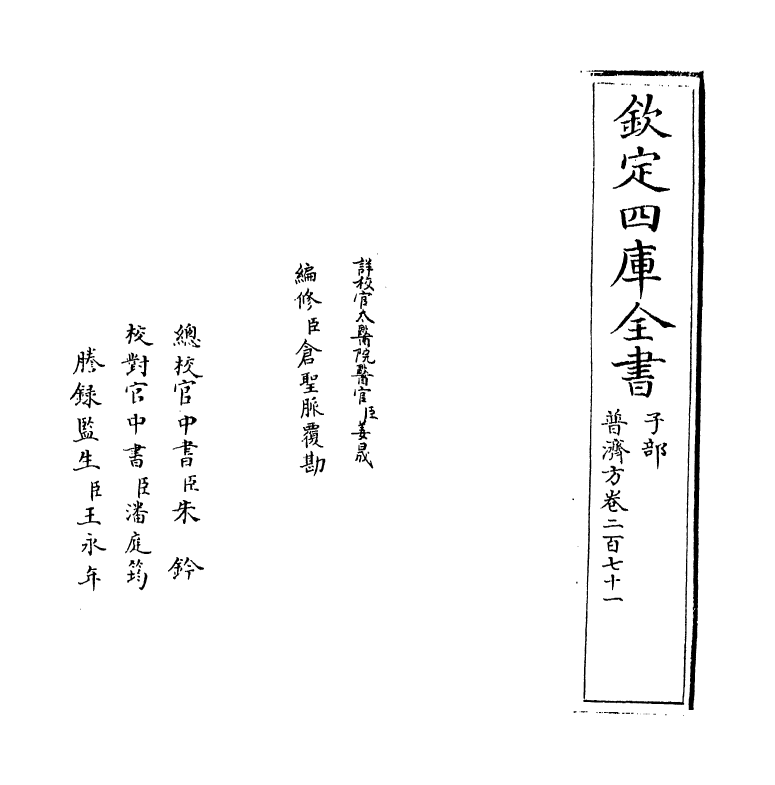 欽定四庫全書
子部
普濟方卷二百七十一
詳校官太醫院醫官臣姜晟
編修臣倉聖脈覆勘
總校官中書臣朱鈐
校對官中書臣潘庭筠
謄錄監生臣王永年